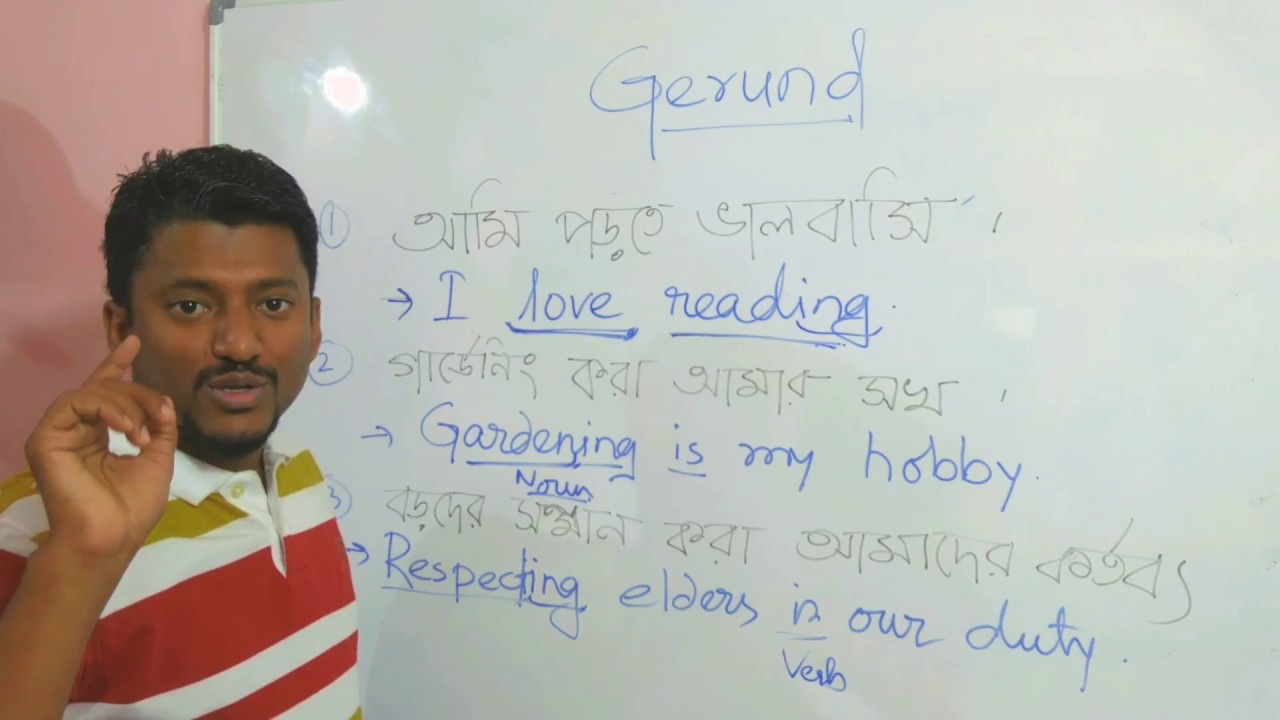 Gerund
① আমি পড়তে ভালবাসি ।
→ I love reading.
② গার্ডেনিং করা আমার সখ ।
→ Gardening is my hobby.
Noun
③ বড়দের সম্মান করা আমাদের কর্তব্য
→ Respecting elders is our duty.
Verb